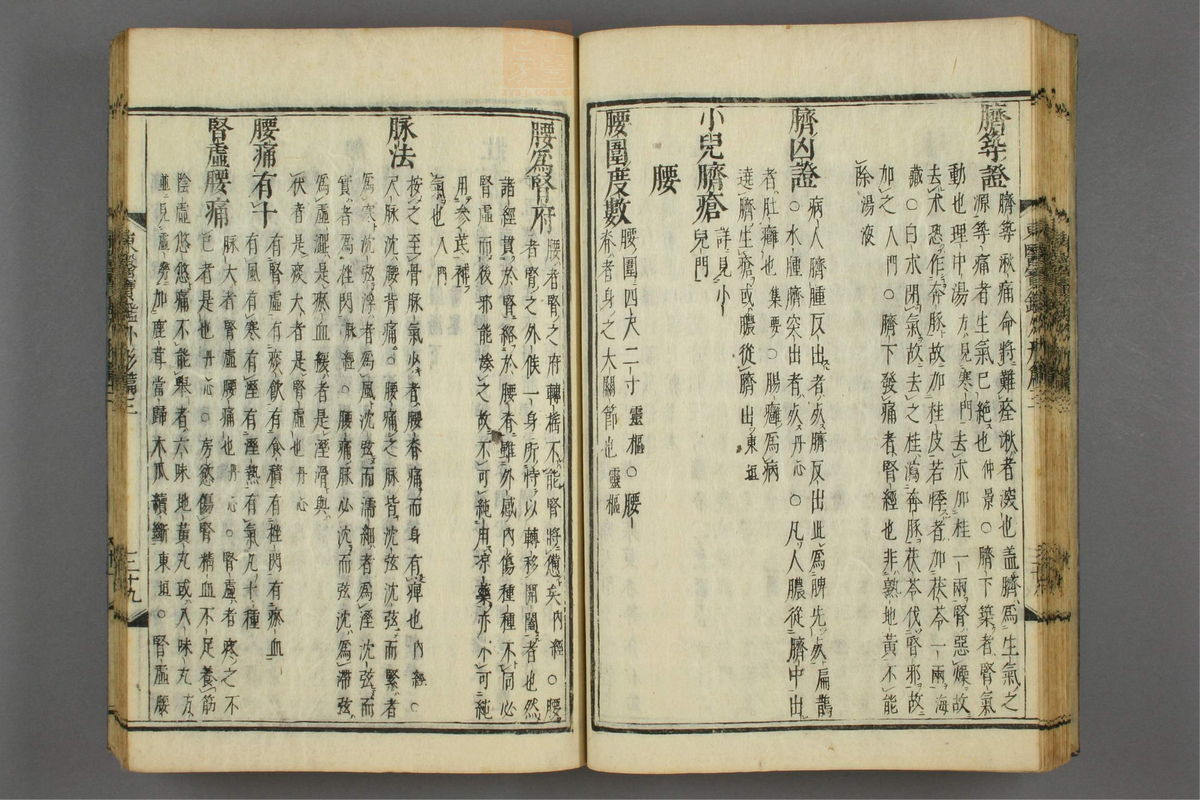 臍築證 臍築湫痛命將難痊湫者深也盖臍爲生氣之
源築痛者生氣已絶也仲景○臍下築者腎氣
動也理中湯方見寒門去朮加桂一兩腎惡燥故
去朮恐作奔豚故加桂皮若悸者加茯苓一兩海
藏○白朮閉氣故去之桂瀉奔豚茯苓伐腎邪故
加之入門○臍下發痛者腎經也非熟地黃不能
除湯液
臍凶證 病人臍腫反出者死臍反出此爲脾先死扁鵲
○水腫臍突出者死丹心○凡人膿從臍中出
者肚癰也集要○腸癰爲病
遶臍生瘡或膿從臍出東垣
小兒臍瘡 詳見小
兒門
腰
腰圍度數 腰圍四尺二寸靈樞○腰
脊者身之大關節也靈樞
腰爲腎府 腰者腎之府轉搖不能腎將憊矣內經○腰
者腎之外候一身所恃以轉移開闔者也然
諸經貫於腎經於腰脊雖外感內傷種種不同必
腎虛而後邪能湊之故不可純用凉藥亦不可純
用參芪補
氣也入門
脉法 按之至骨脉氣少者腰脊痛而身有痺也內經○
尺脉沈腰背痛○腰痛之脉皆沈弦沈弦而緊者
爲寒沈弦浮者爲風沈弦而濡細者爲濕沈弦而
實者爲挫閃脉經○腰痛脉必沈而弦沈爲滯弦
爲虛澀是瘀血緩者是濕滑與
伏者是痰大者是腎虛也丹心
腰痛有十 有腎虛有痰飮有食積有挫閃有瘀血
有風有寒有濕有濕熱有氣凡十種
腎虛腰痛 脉大者腎虛腰痛也丹心○腎虛者疼之不
已者是也丹心○房慾傷腎精血不足養筋
陰虛悠悠痛不能擧者六味地黃丸或八味丸方
並見虛勞加鹿茸當歸木瓜續斷東垣○腎虛腰
東醫寶鑑外形篇三
三十九